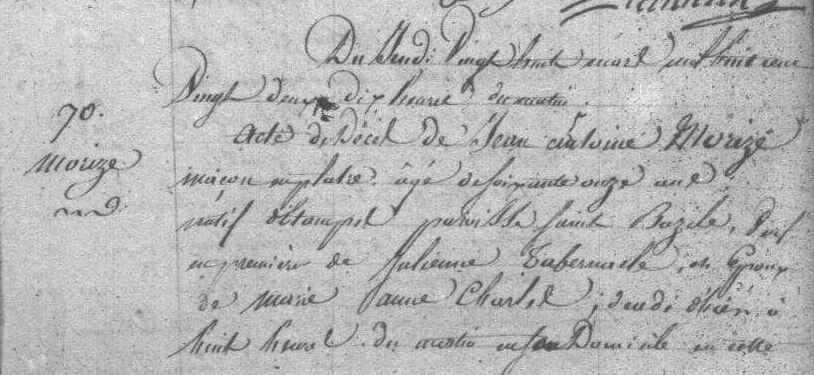 Du Jeudi Vingt huit mars mil huit cent
Vingt deux, dix heures du matin.
70.
Morize
md
acte de Décès de Jean antoine Morize
maçon en platre. âgé de soixante onze ans
natif d'Etampes paroisse Saint Bazile, Veuf
en première de Julienne Tabernacle, et Epoux
de marie anne Charles,
huit heures du matin en son Domicile en cette